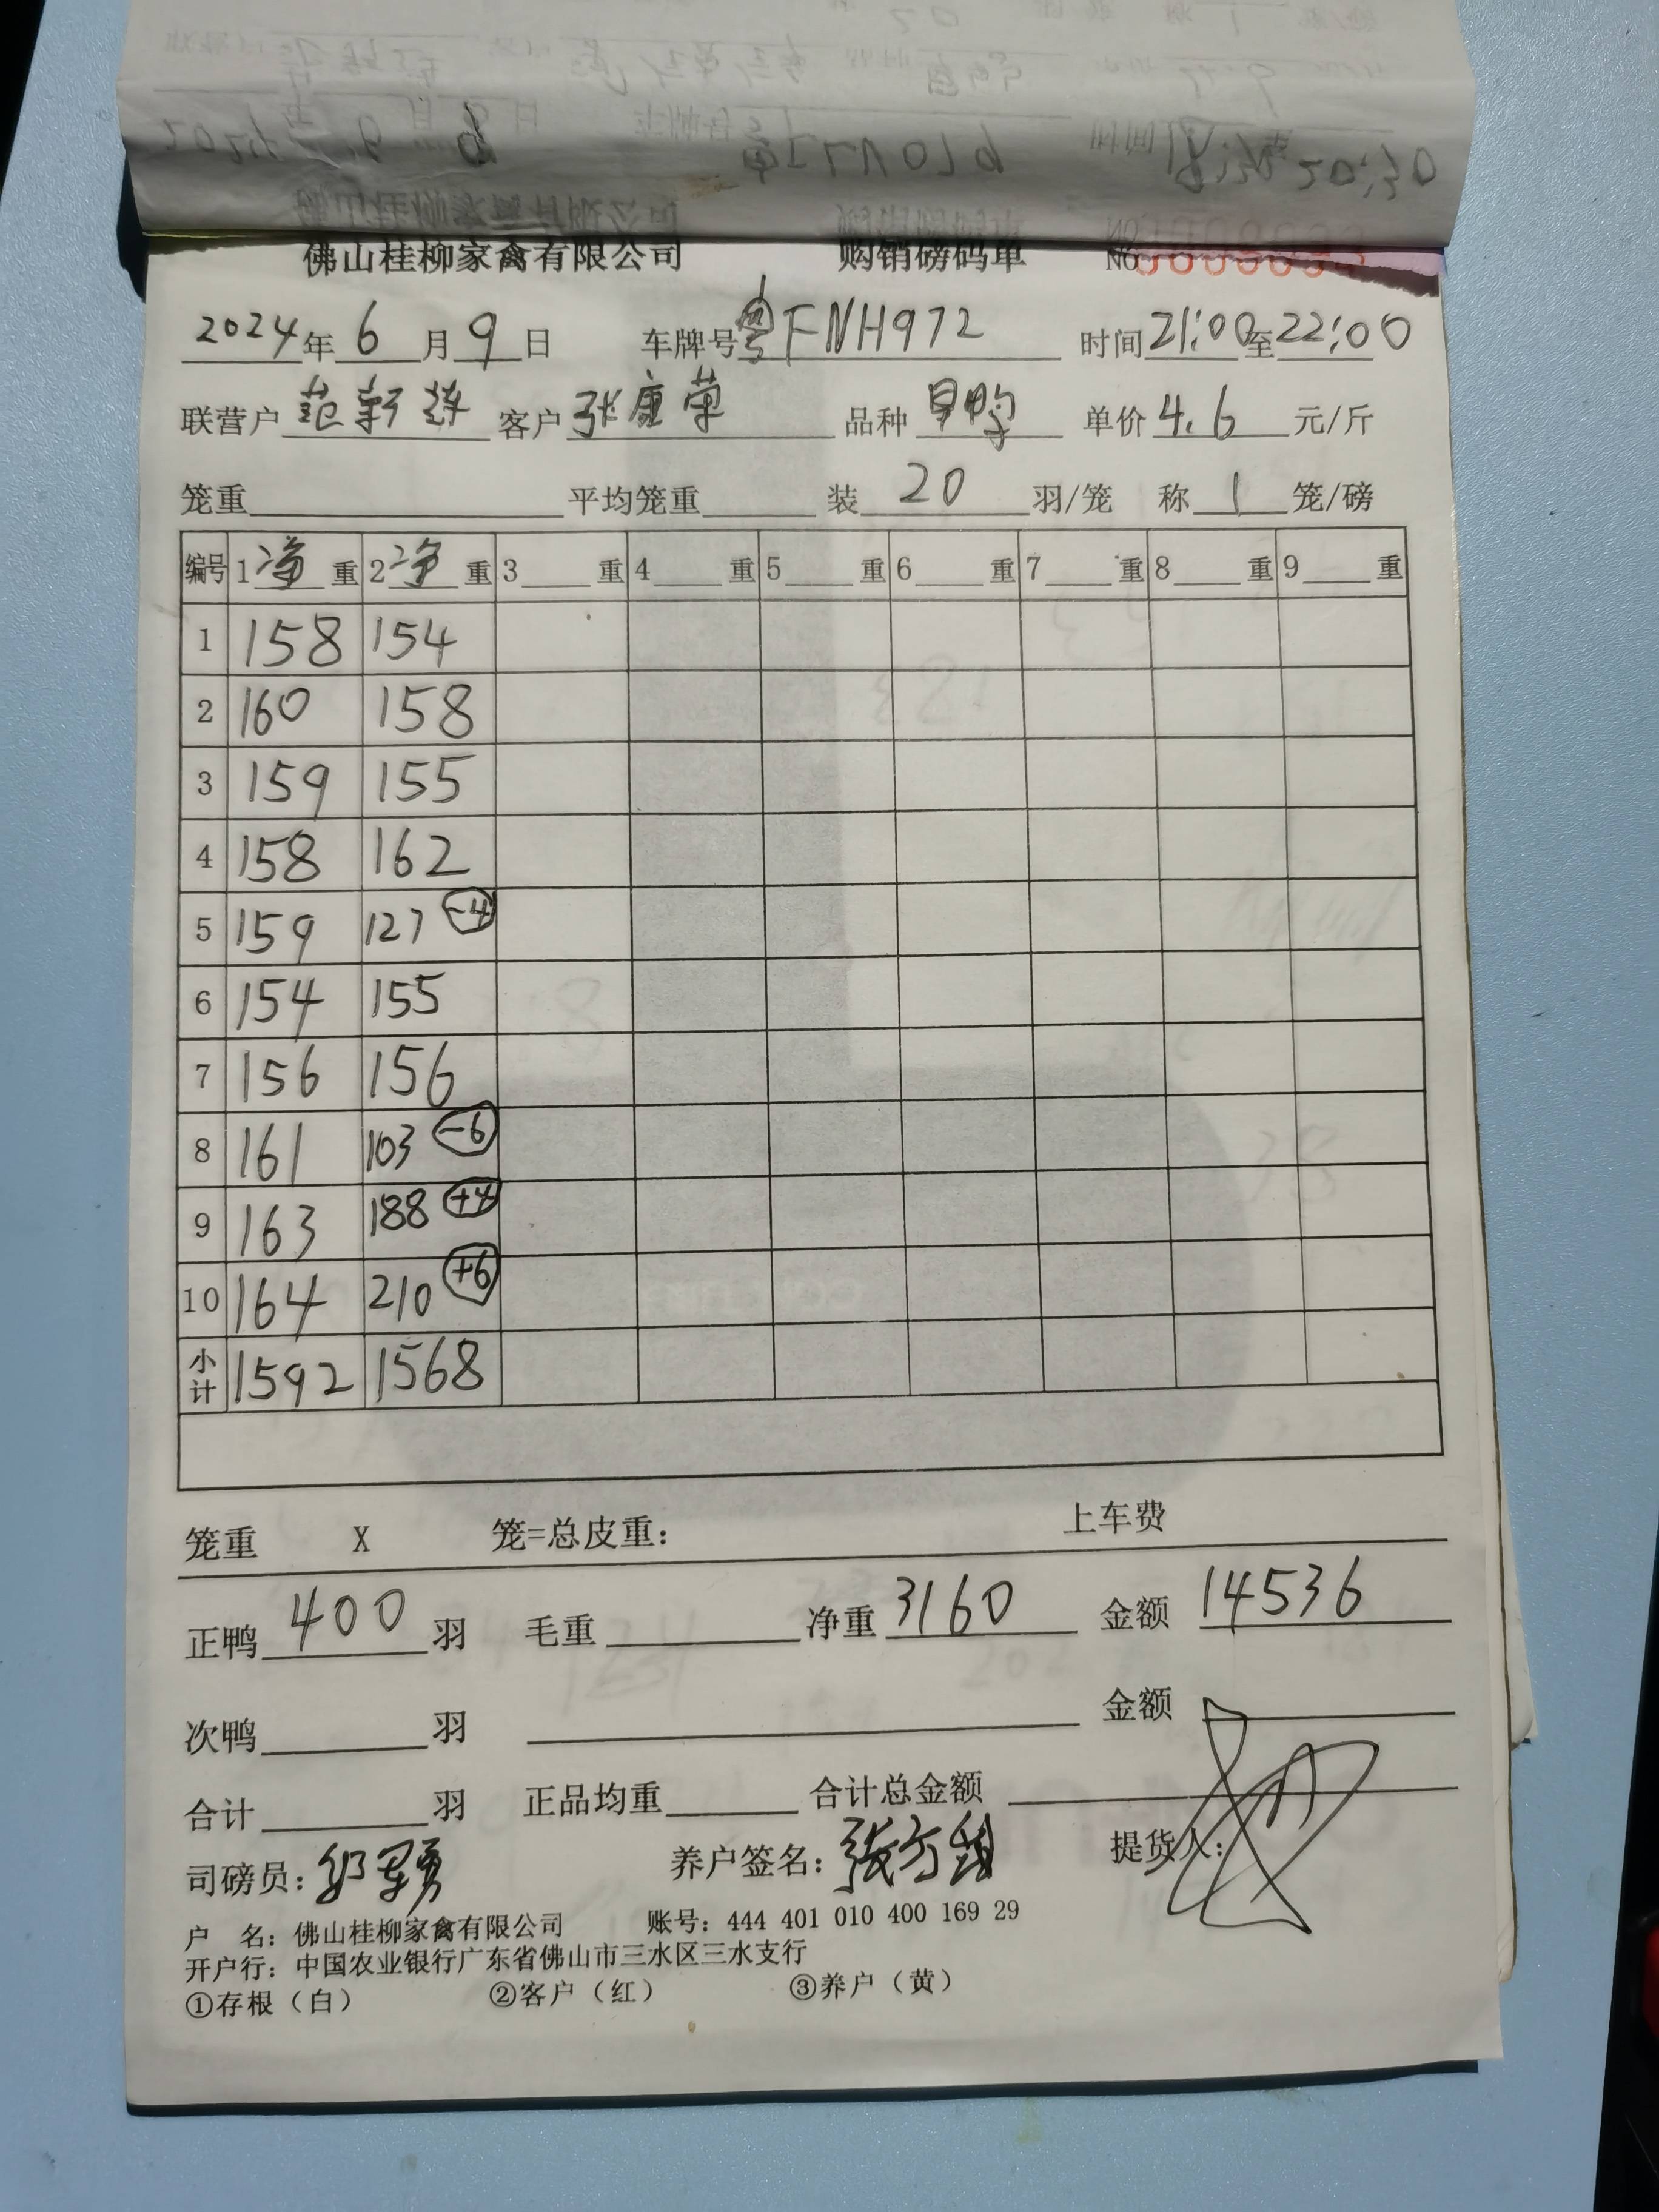 佛山桂柳家禽有限公司 购销磅码单 NO
2024年6月9日 车牌号粤FNH972 时间21:00至22:00
联营户 范新 客户 张康荣 品种 旱鸭 单价4.6元/斤
笼重 平均笼重 装20羽/笼 称1笼/磅
编号 1净重 2净重 3重 4重 5重 6重 7重 8重 9重
1 158 154
2 160 158
3 159 155
4 158 162
5 159 127 -4
6 154 155
7 156 156
8 161 103 -6
9 163 188 +4
10 164 210 +6
小计 1592 1568
笼重 X 笼=总皮重: 上车费
正鸭400羽 毛重 净重3160 金额14536
次鸭 羽 金额
合计 羽 正品均重 合计总金额
司磅员: 养户签名: 提货人:
户 名:佛山桂柳家禽有限公司 账号:444 401 010 400 169 29
开户行:中国农业银行广东省佛山市三水区三水支行
①存根(白) ②客户(红) ③养户(黄)